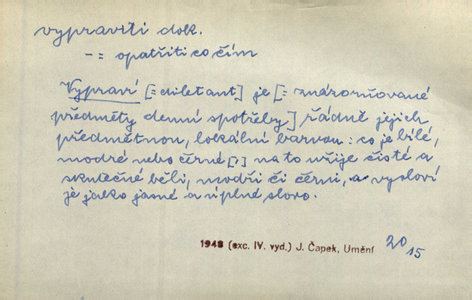 vypraviti dok.
-= opatřiti co čím
Vypraví [= diletant] je [= znázorňované
předměty denní spotřeby] řádně jejich
předmětnou, lokální barvou: co je bílé,
modré nebo černé [,] na to užije čisté a
skutečné běli, modři či černi, a vysloví
je jako jasné a úplné slovo.
1948 (exc. IV. vyd.) J. Čapek, Umění
20
15